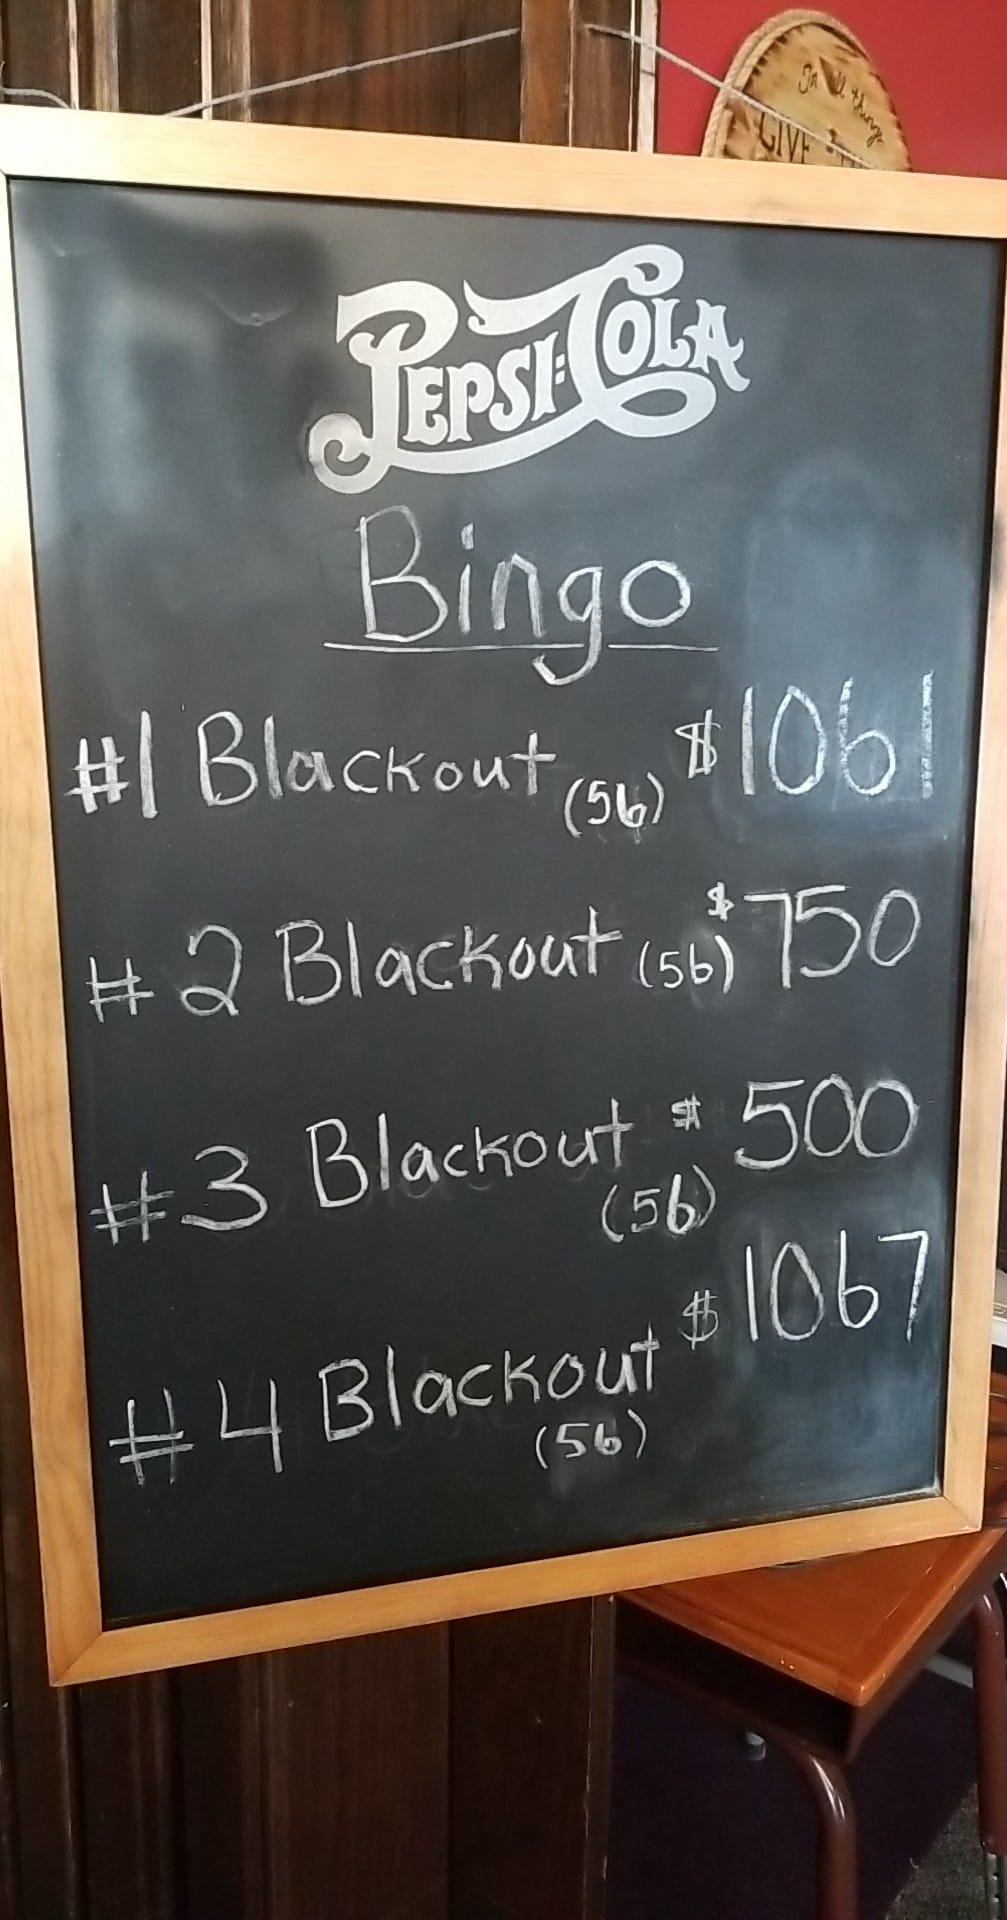 In all things
GIVE
PEPSI-COLA
Bingo
#1 Blackout (56) $1061
#2 Blackout (56) $750
#3 Blackout $500
(56)
#4 Blackout $1067
(56)